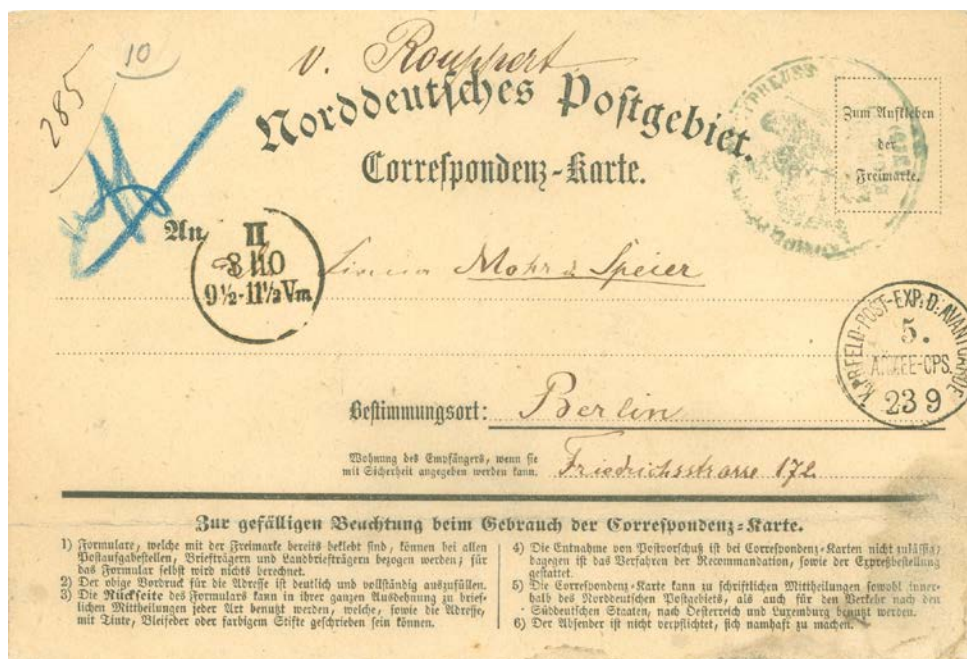 285
10
v. Rouppert
Norddeutsches Postgebiet.
Correspondenz-Karte.
Zum Aufkleben
der
Freimarke.
An
II
8 10
9½-11½ Vm
Mohr & Speier
K. PR. FELD-POST-EXP. D. AVANTGARDE
5.
ARMEE-CPS.
23 9
Bestimmungsort: Berlin
Wohnung des Empfängers, wenn sie
mit Sicherheit angegeben werden kann. Friedrichsstrasse 172
Zur gefälligen Beachtung beim Gebrauch der Correspondenz-Karte.
1) Formulare, welche mit der Freimarke bereits beklebt sind, können bei allen
Postaufgabestellen, Briefträgern und Landbriefträgern bezogen werden; für
das Formular selbst wird nichts berechnet.
2) Der obige Vordruck für die Adresse ist deutlich und vollständig auszufüllen.
3) Die Rückseite des Formulars kann in ihrer ganzen Ausdehnung zu brief-
lichen Mittheilungen jeder Art benutzt werden, welche, sowie die Adresse,
mit Tinte, Bleifeder oder farbigem Stifte geschrieben sein können.
4) Die Entnahme von Postvorschuß ist bei Correspondenz-Karten nicht zulässig;
dagegen ist das Verfahren der Recommandation, sowie der Expreßbestellung
gestattet.
5) Die Correspondenz-Karte kann zu schriftlichen Mittheilungen sowohl inner-
halb des Norddeutschen Postgebiets, als auch für den Verkehr nach den
Süddeutschen Staaten, nach Oesterreich und Luxemburg benutzt werden.
6) Der Absender ist nicht verpflichtet, sich namhaft zu machen.